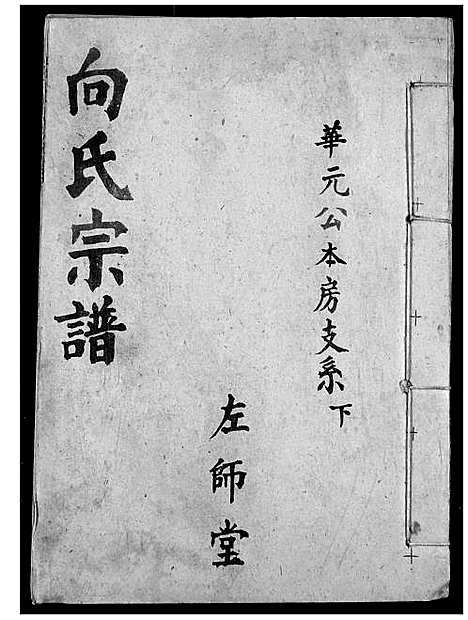 華元公本房支系下
左師堂
向氏宗譜